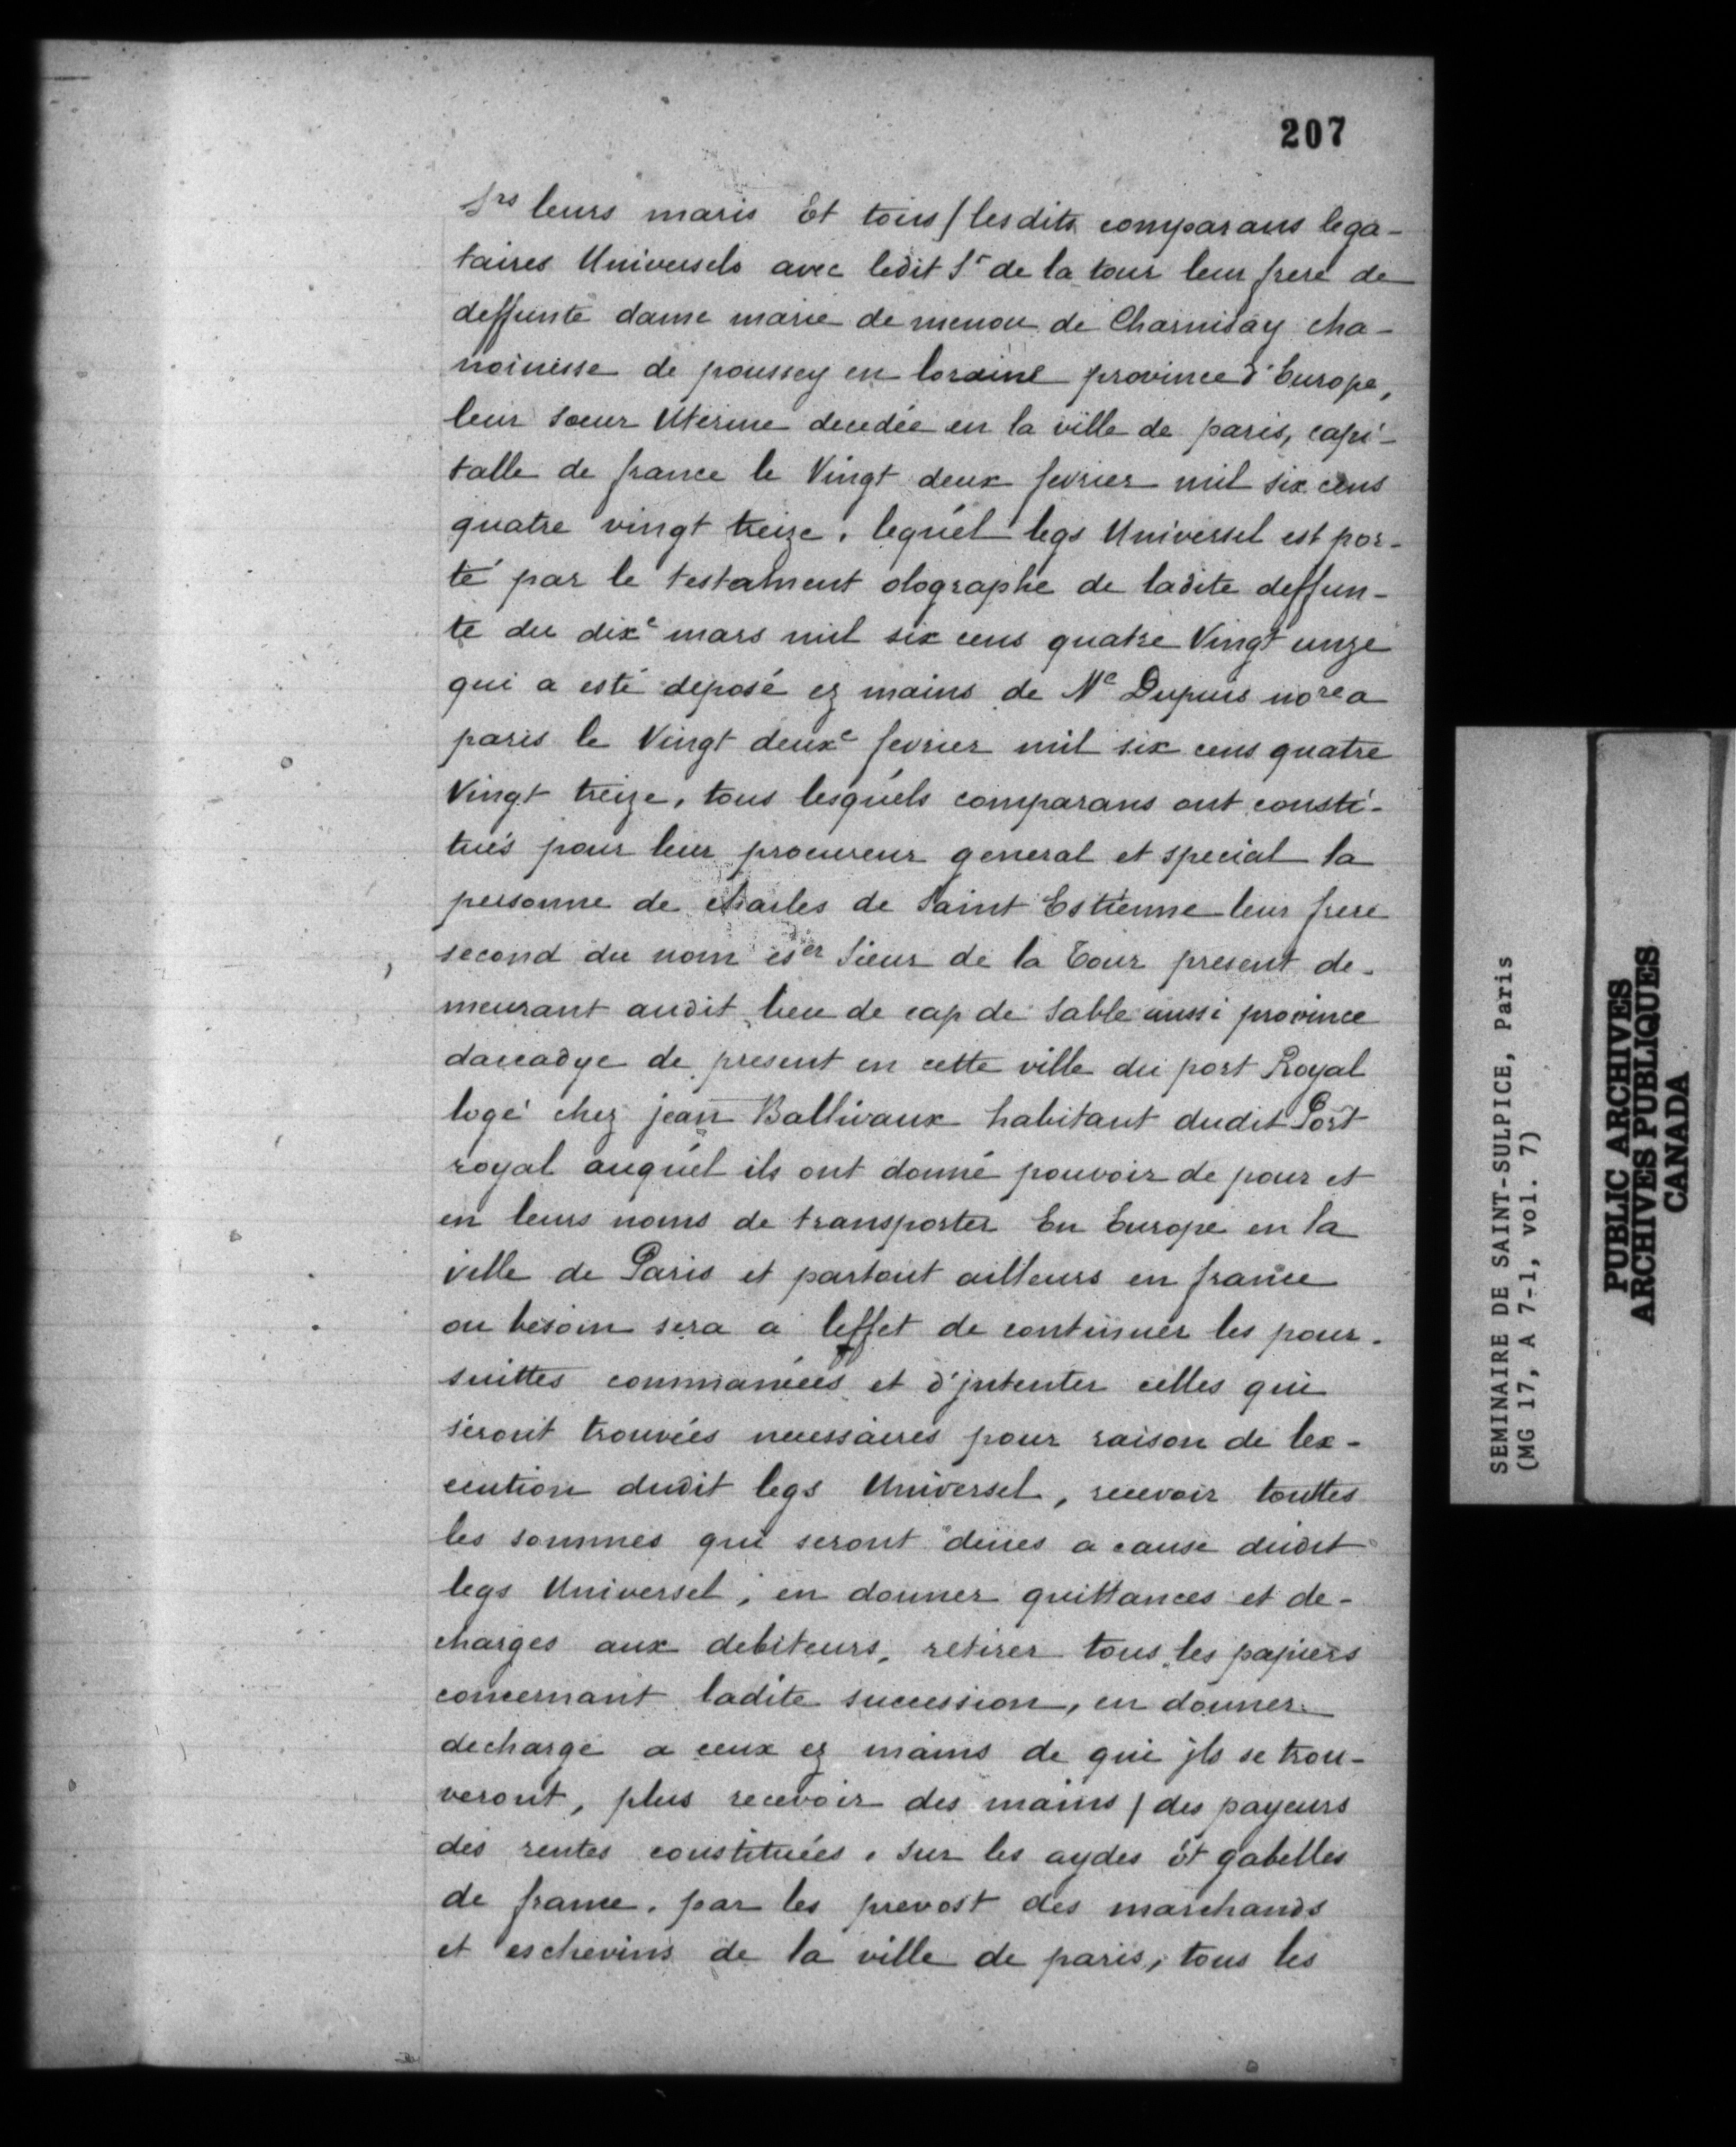 207
Srs leurs maris Et tous/lesdits comparans lega-
taires Universels avec ledit Sr de la tour leur frere de
deffunte dame marie de menou de Charnisay cha-
noinesse de poussey en loraine province d'Europe,
leur soeur Uterine decedée en la ville de paris, capi-
talle de france le Vingt deux fevrier mil six cens
quatre vingt treize, lequel legs Universel est por-
té par le testament olographe de ladite deffun-
te du dixe mars mil six cens quatre Vingt unze
qui a esté deposé ez mains de Me Dupuis nore a
paris le Vingt deuxe fevrier mil six cens quatre
Vingt treize, tous lesquels comparans ont consti-
tués pour leur procureur general et special la
personne de charles de Saint Estienne leur frere
second du nom eser Sieur de la Tour present de-
meurant audit lieu de cap de Sable aussi province
daccadye de present en cette ville du port Royal
logé chez jean Ballivaux habitant dudit Port
royal auquel ils ont donné pouvoir de pour et
en leurs noms de transporter En Europe en la
ville de Paris et partout ailleurs en france
ou besoin sera a leffet de continuer les pour-
suittes commancées et d'jntenter celles qui
seront trouvées necessaires pour raison de lex-
cution dudit legs Universel, recevoir touttes
les sommes qui seront deues a cause dudit
legs Universel, en donner quittances et de-
charges aux debiteurs, retirer tous les papiers
concernant ladite succession, en donner
decharge a ceux ez mains de qui jls se trou-
veront, plus recevoir des mains/des payeurs
des rentes constituées, sur les aydes et gabelles
de france, par les prevost des marchands
et eschevins de la ville de paris, tous les
SEMINAIRE DE SAINT-SULPICE, Paris
(MG 17, A 7-1, vol. 7)
PUBLIC ARCHIVES
ARCHIVES PUBLIQUES
CANADA